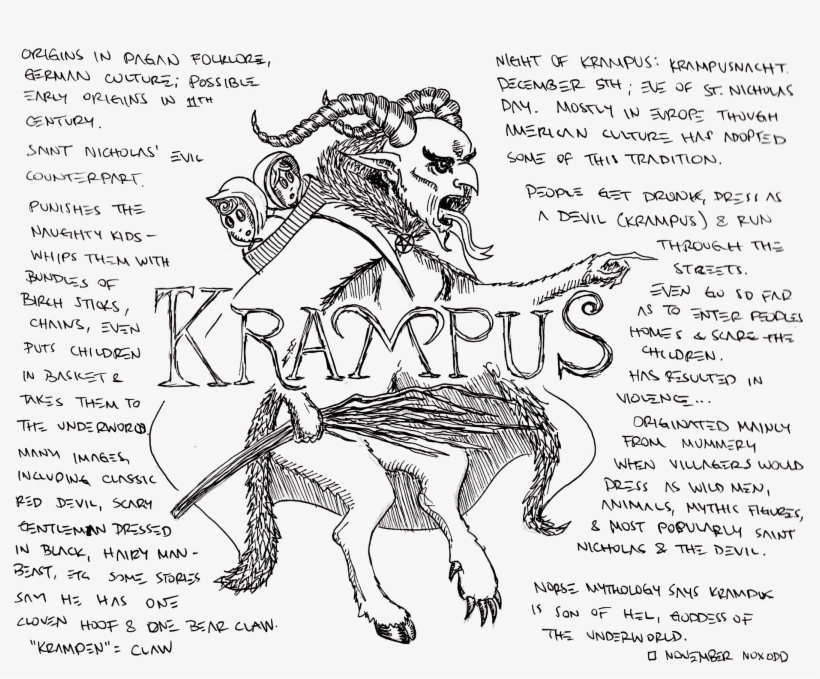 ORIGINS IN PAGAN FOLKLORE,
GERMAN CULTURE; POSSIBLE
EARLY ORIGINS IN 11TH
CENTURY.
SAINT NICHOLAS' EVIL
COUNTERPART.
PUNISHES THE
NAUGHTY KIDS -
WHIPS THEM WITH
BUNDLES OF
BIRCH STICKS,
CHAINS, EVEN
PUTS CHILDREN
IN BASKET &
TAKES THEM TO
THE UNDERWORLD
MANY IMAGES,
INCLUDING CLASSIC
RED DEVIL, SCARY
GENTLEMAN DRESSED
IN BLACK, HAIRY MAN-
BEAST, ETC SOME STORIES
SAY HE HAS ONE
CLOVEN HOOF & ONE BEAR CLAW.
"KRAMPEN" = CLAW
KRAMPUS
NIGHT OF KRAMPUS: KRAMPUSNACHT.
DECEMBER 5TH; EVE OF ST. NICHOLAS
DAY. MOSTLY IN EUROPE THOUGH
AMERICAN CULTURE HAS ADOPTED
SOME OF THIS TRADITION.
PEOPLE GET DRUNK, DRESS AS
A DEVIL (KRAMPUS) & RUN
THROUGH THE
STREETS.
EVEN GO SO FAR
AS TO ENTER PEOPLES
HOMES & SCARE THE
CHILDREN.
HAS RESULTED IN
VIOLENCE...
ORIGINATED MAINLY
FROM MUMMERY
WHEN VILLAGERS WOULD
DRESS AS WILD MEN,
ANIMALS, MYTHIC FIGURES,
& MOST POPULARLY SAINT
NICHOLAS & THE DEVIL.
NORSE MYTHOLOGY SAYS KRAMPUS
IS SON OF HEL, GODDESS OF
THE UNDERWORLD.
NOVEMBER NOXODD